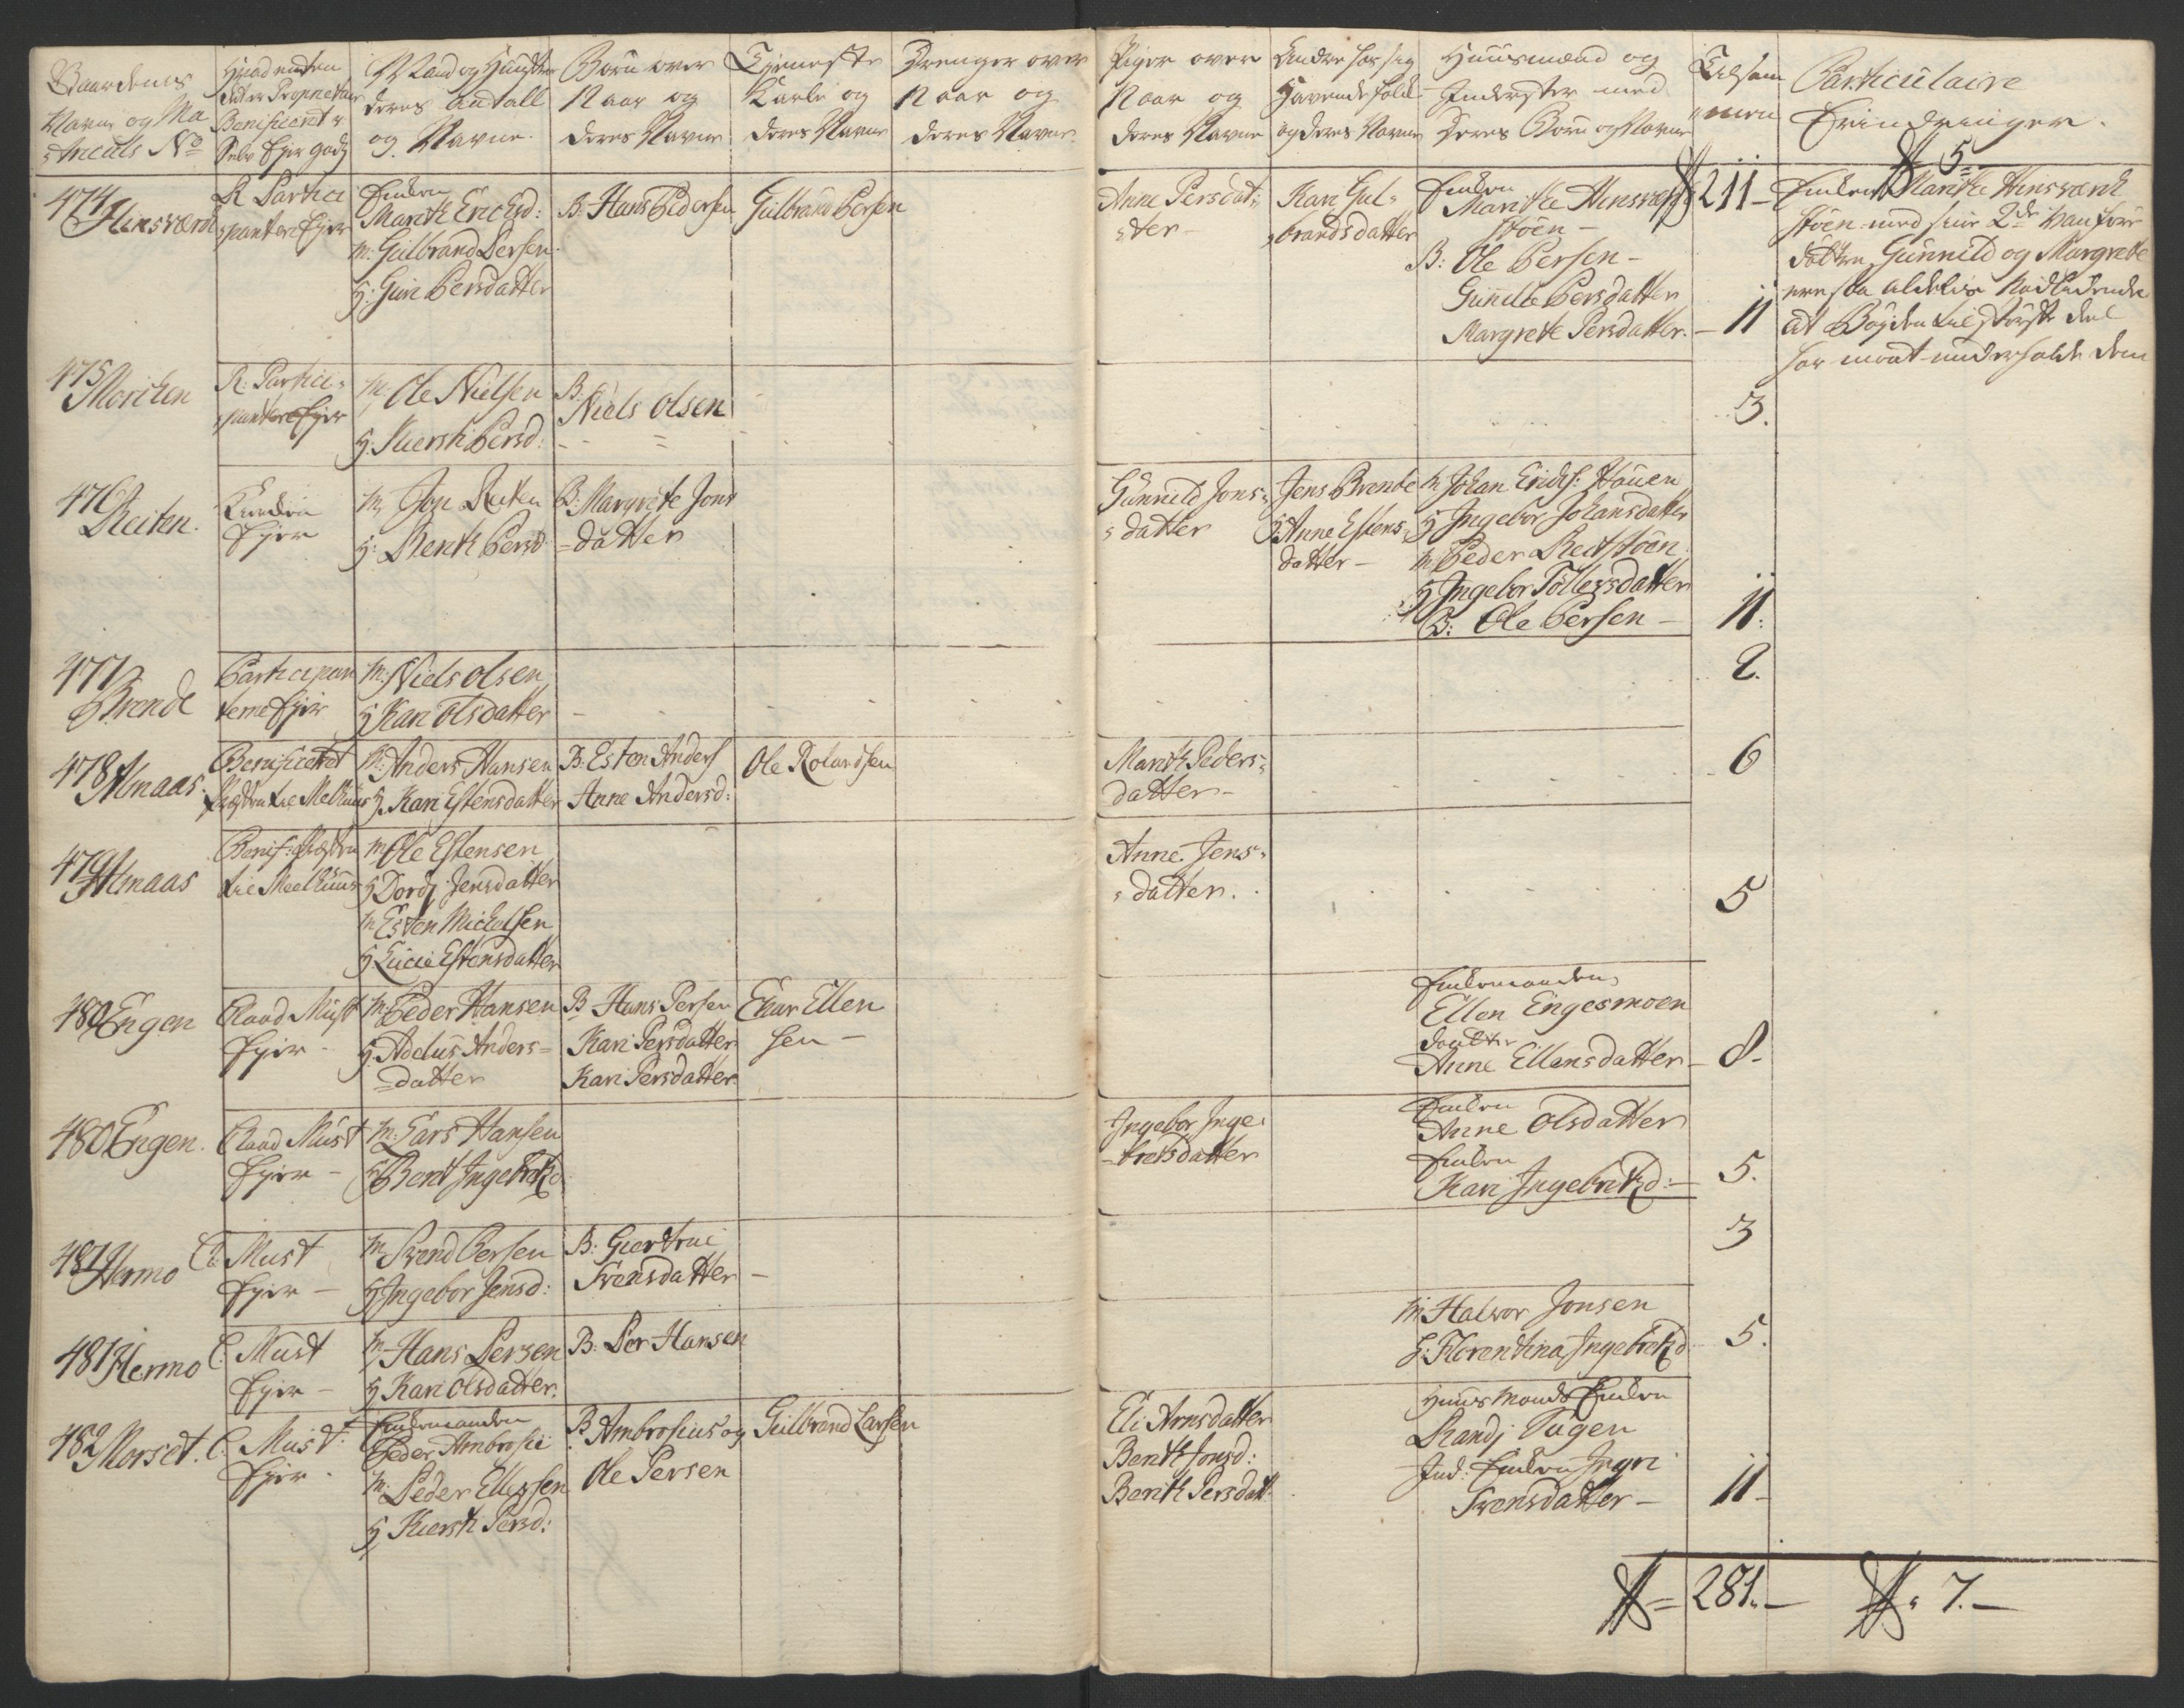 Gaardenes Navne og Matriculs No
Hvad enten det er Proprietair Beneficeret eller Selv Ejer gods
Mand og Hustru deres Antall og Navne.
Børn over 12 aar og deres Navne
Tieneste Karle og deres Navne
Drenger over 12 aar og deres Navne
Piger over 12 aar og deres Navne
Andre for sig Havende folk og deres Navne
Huusmænd og Inderster med deres Børn og Navne
Tilsammen
Particulaire Erindringer.
211
5
474 Hinsværk
R Partici
panter Ejer
Enken
Marith Erichsd:
M. Gulbrand Persen
H: Guri Persdatter
B. Hans Pedersen
Gulbrand Persen
Anne Persdat:
ter
Kari Gul=
brandsdatter
Enken
Marithe Hinsværk
støen
B: Ole Persen
Gunnild Persdatter
Margrete Persdatter.
11
Enken Marithe Hinsværk
støen med sine 2de vanføre
døttre, Gunnild og Margrete
ere saa aldeles Nødlidende
at Bøyden til største deel
har maat underholde dem
475 Morchen
R. Partici=
panter Ejer
M. Ole Nielsen
H. Kiersti Persd:
B: Niels Olsen
3.
476 Reiten.
Kirken
Ejer
M, Jon Reiten
H: Berit Persd
B: Margrete Jons
=datter
Gunnild Jons=
datter
Jens Brende
H Anne Estens=
datter
M Johan Erichs: Houen
H Ingebor Johansdatter
M Peder Reitstøen
H Ingebor Tollefsdatter
B: Ole Persen
11.
477 Brende
Participan
terne Ejer
M: Niels Olsen
H Kari Olsdatter
2.
478 Almaas.
Benificeret
Presten til Melhuus
M: Anders Hansen
H. Kari Estensdatter
B: Esten Anders
Anne Andersd:
Ole Rolandsen
Marith Peders=
datter
6
479 Almaas
Benif: Presten
til Meelhuus
M Ole Estensen
H Dordj Jensdatter
M Esten Michelsen
H Lucie Estensdatter
Anne Jens=
datter.
5
480 Engen
Raad Must
Ejer
M: Peder Hansen
H: Adelus Anders=
=datter
B Hans Persen
Kari Persdatter
Kari Persdatter
Einar Ellen
sen
Enkemanden
Ellen Engesmoen
datter
Anne Ellensdatter
8.
480 Engen.
Raad Must
Ejer
M: Lars Hansen
H Berit Ingebritzd
Ingebor Inge
bretsdatter
Enken
Anne Olsdatter
Enken
Kari Ingebritzd:
5.
481 Hermo
C: Must
Ejer
M Svend Persen
H Ingebor Jensd:
B: Giertrue
Svensdatter
3
481 Hermo
C. Must
Ejer
M, Hans Persen
H Kari Olsdatter.
B: Per Hansen
M: Halvor Jonsen
H: Florentina Ingebritzd
5.
482 Morset.
C: Must.
Ejer.
Enkemanden
Peder Ambrosie
M: Peder Ellefsen
H Kiersti Persd:
B: Ambrosius og
Ole Persen
Gulbrand Larsen
Eli Arnsdatter
Berit Jonsd:
Berit Persdatt:
Huus Mands Enken
Randj Vagen
Ind: Enken Ingri
Svensdatter
11
281.
7.